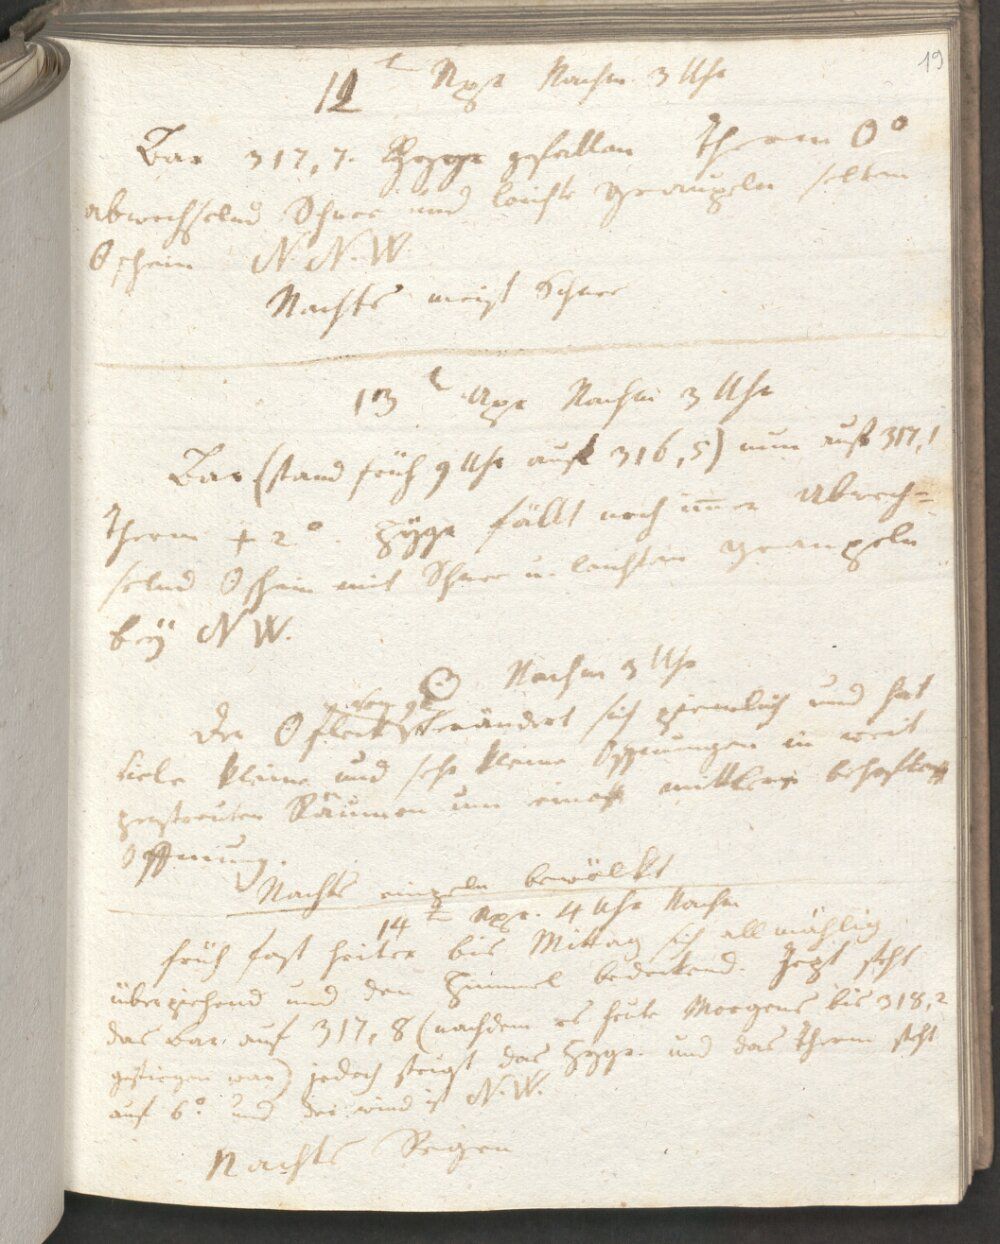 19
12<sup>t</sup> Apr Nachm 3 Uhr
Bar 317,7. Hygr gefallen Therm 0°
abwechselnd Schnee und leichte Graupeln selten
☉schein N. N. W.
Nachts meist Schnee
13<sup>t</sup> Apr Nachm 3 Uhr
Bar (stand früh 9 Uhr auf 316,5) nun auf 317,1
Therm + 2°. Hygr fällt noch immer Abwech-
selnd ☉schein mit Schnee u. leichten Graupeln
bey NW.
☉ Nachm 3 Uhr
Der ☉fleck verändert sich ziemlich und hat
viele kleine und sehr kleine Öffnungen in weit
zerstreuten Räumen um eine mittlere behofte
Öffnung.
Nachts einzeln bewölkt
14<sup>t</sup> Apr. 4 Uhr Nachm
früh fast heiter bis Mittag sich allmählig
überziehend und den Himmel bedeckend. Jezt steht
das Bar. auf 317,8 (nachdem es heute Morgens bis 318,2
gestiegen war) jedoch steigt das Hygr. und das Therm steht
auf 6° und der wind ist N.W.
Nachts Regen